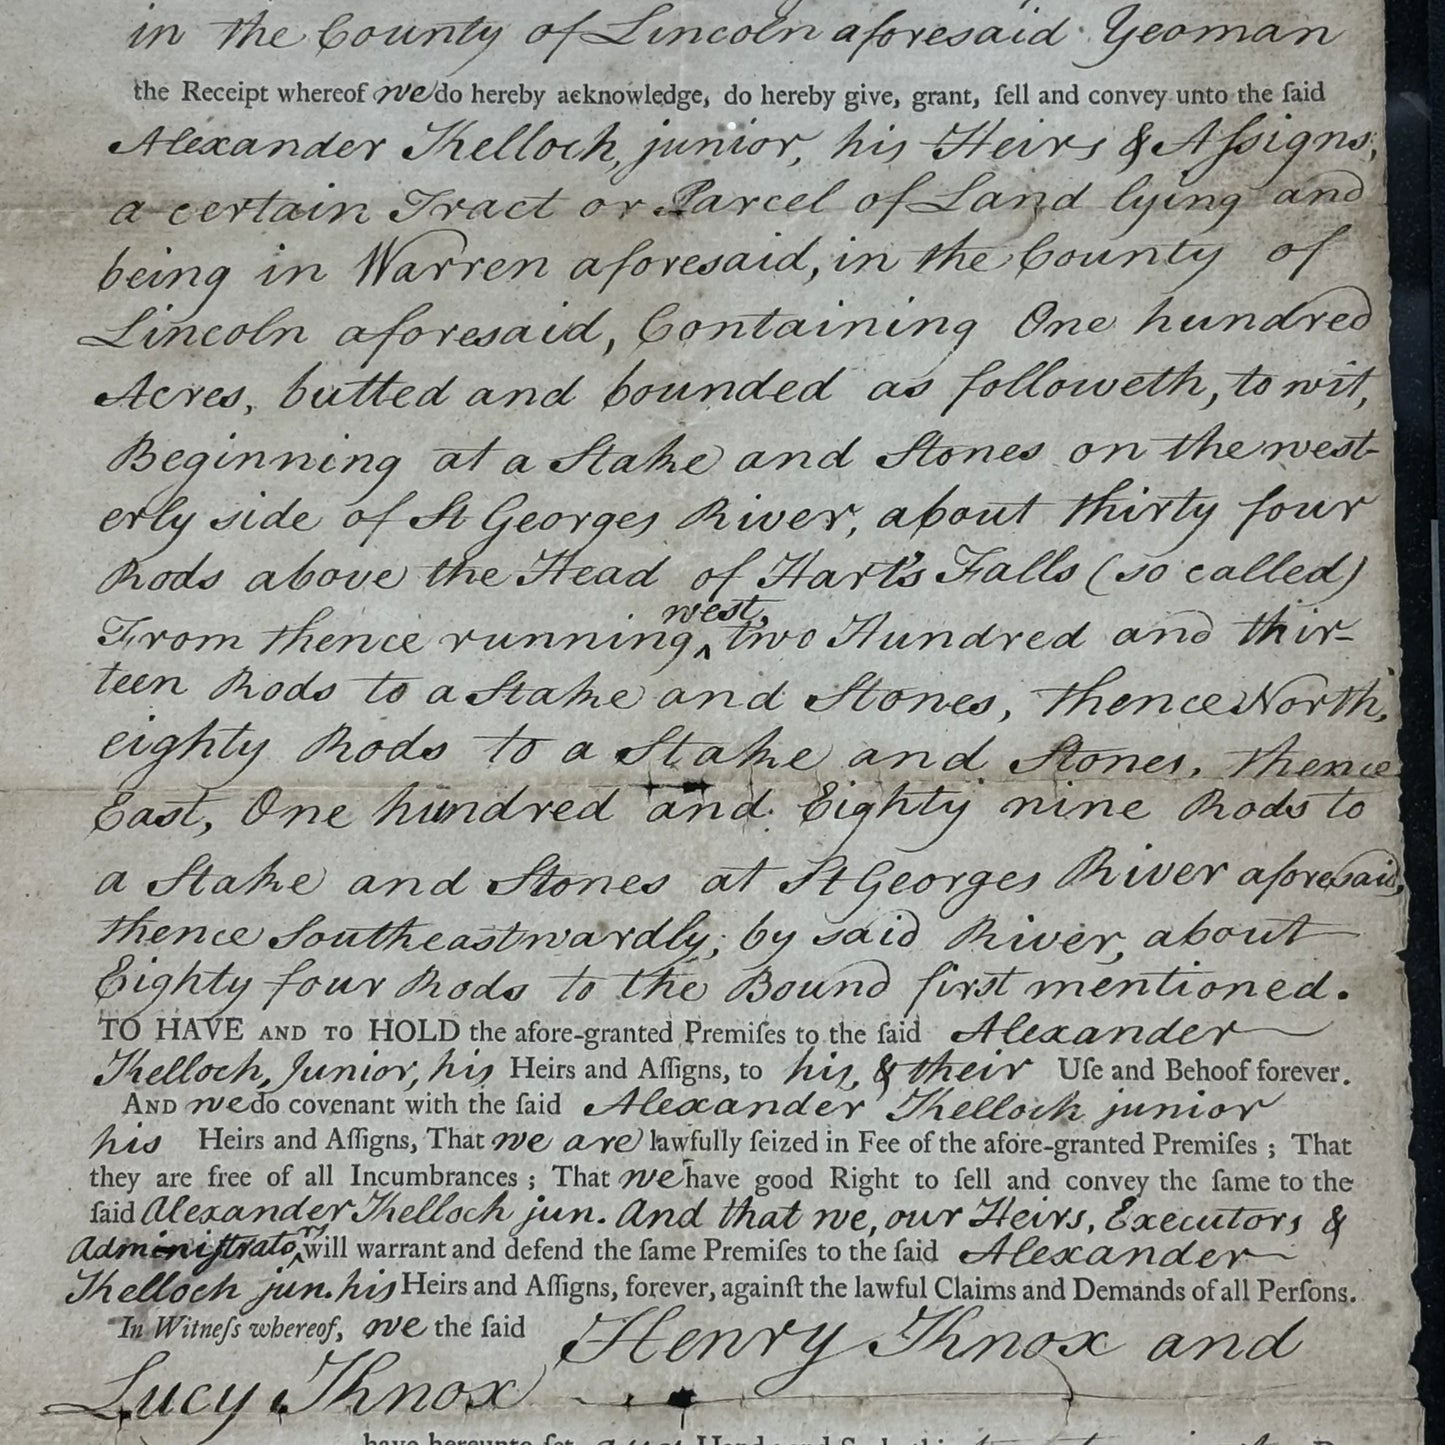 in the County of Lincoln aforesaid Yeoman
the Receipt whereof we do hereby acknowledge, do hereby give, grant, ſell and convey unto the ſaid
Alexander Kelloch, junior, his Heirs & Aſsigns,
a certain Tract or Parcel of Land lying and
being in Warren aforesaid, in the County of
Lincoln aforesaid, Containing One hundred
Acres, butted and bounded as followeth, to wit,
Beginning at a Stake and Stones on the west-
erly side of St Georges River, about thirty four
Rods above the Head of Hart's Falls (so called)
From thence running ‸ west, two Hundred and thir-
teen Rods to a Stake and Stones, thence North,
eighty Rods to a Stake and Stones, thence
East, One hundred and Eighty nine Rods to
a Stake and Stones at St Georges River aforesaid,
thence Southeastwardly, by said River, about
Eighty four Rods to the Bound first mentioned.
TO HAVE AND TO HOLD the afore-granted Premiſes to the ſaid Alexander
Kelloch, Junior, his Heirs and Aſſigns, to his, & their Uſe and Behoof forever.
AND we do covenant with the ſaid Alexander Kelloch junior
his Heirs and Aſſigns, That we are lawfully ſeized in Fee of the afore-granted Premiſes ; That
they are free of all Incumbrances ; That we have good Right to ſell and convey the ſame to the
ſaid Alexander Kelloch jun. And that we, our Heirs, Executors &
Adminiſtrato‸rs will warrant and defend the ſame Premiſes to the ſaid Alexander
Kelloch jun. his Heirs and Aſſigns, forever, againſt the lawful Claims and Demands of all Perſons.
In Witneſs whereof, we the ſaid Henry Knox and
Lucy Knox
have hereunto ſet our